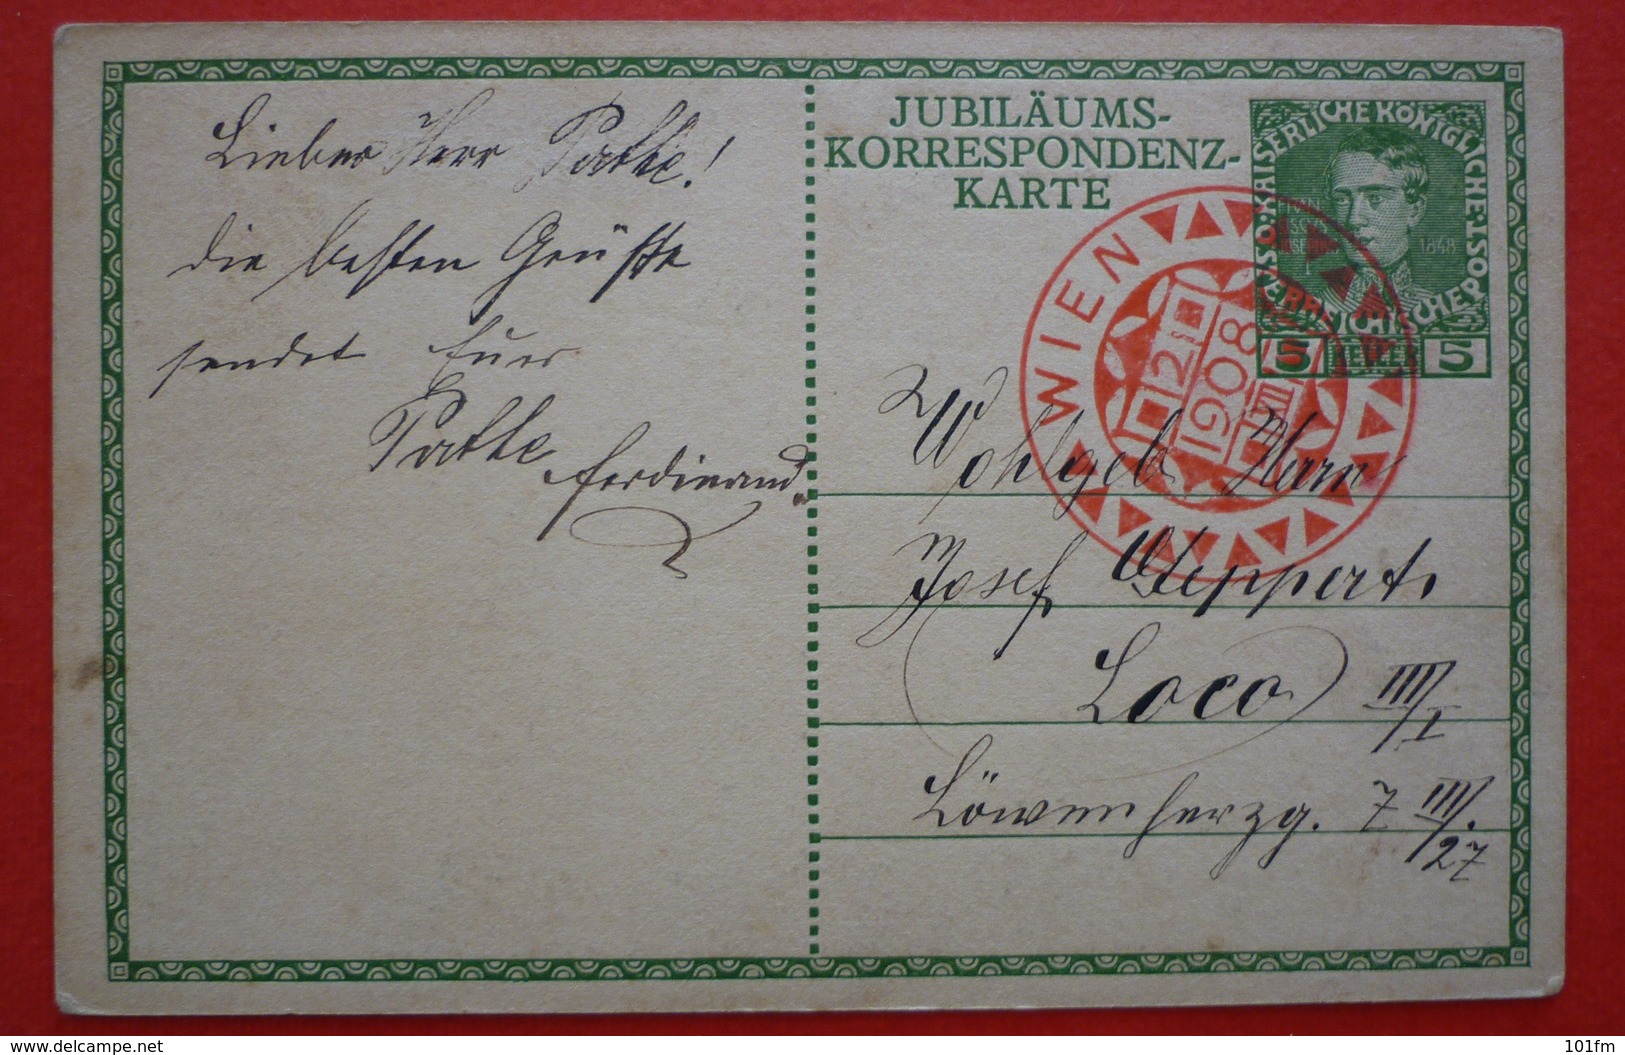 Lieber Herr Pathe!
die besten Grüße
sendet Euer
Pathe Ferdinand
JUBILÄUMS-
KORRESPONDENZ-
KARTE
KAISERLICHE KÖNIGLICHE
ÖSTERREICHISCHE POST
1848
5 HELLER 5
WIEN
2 1908 XII
Wohlgeb Herrn
Josef Geppert
Loco III/I
Löwenherzg. 7 III/27
www.delcampe.net
101fm